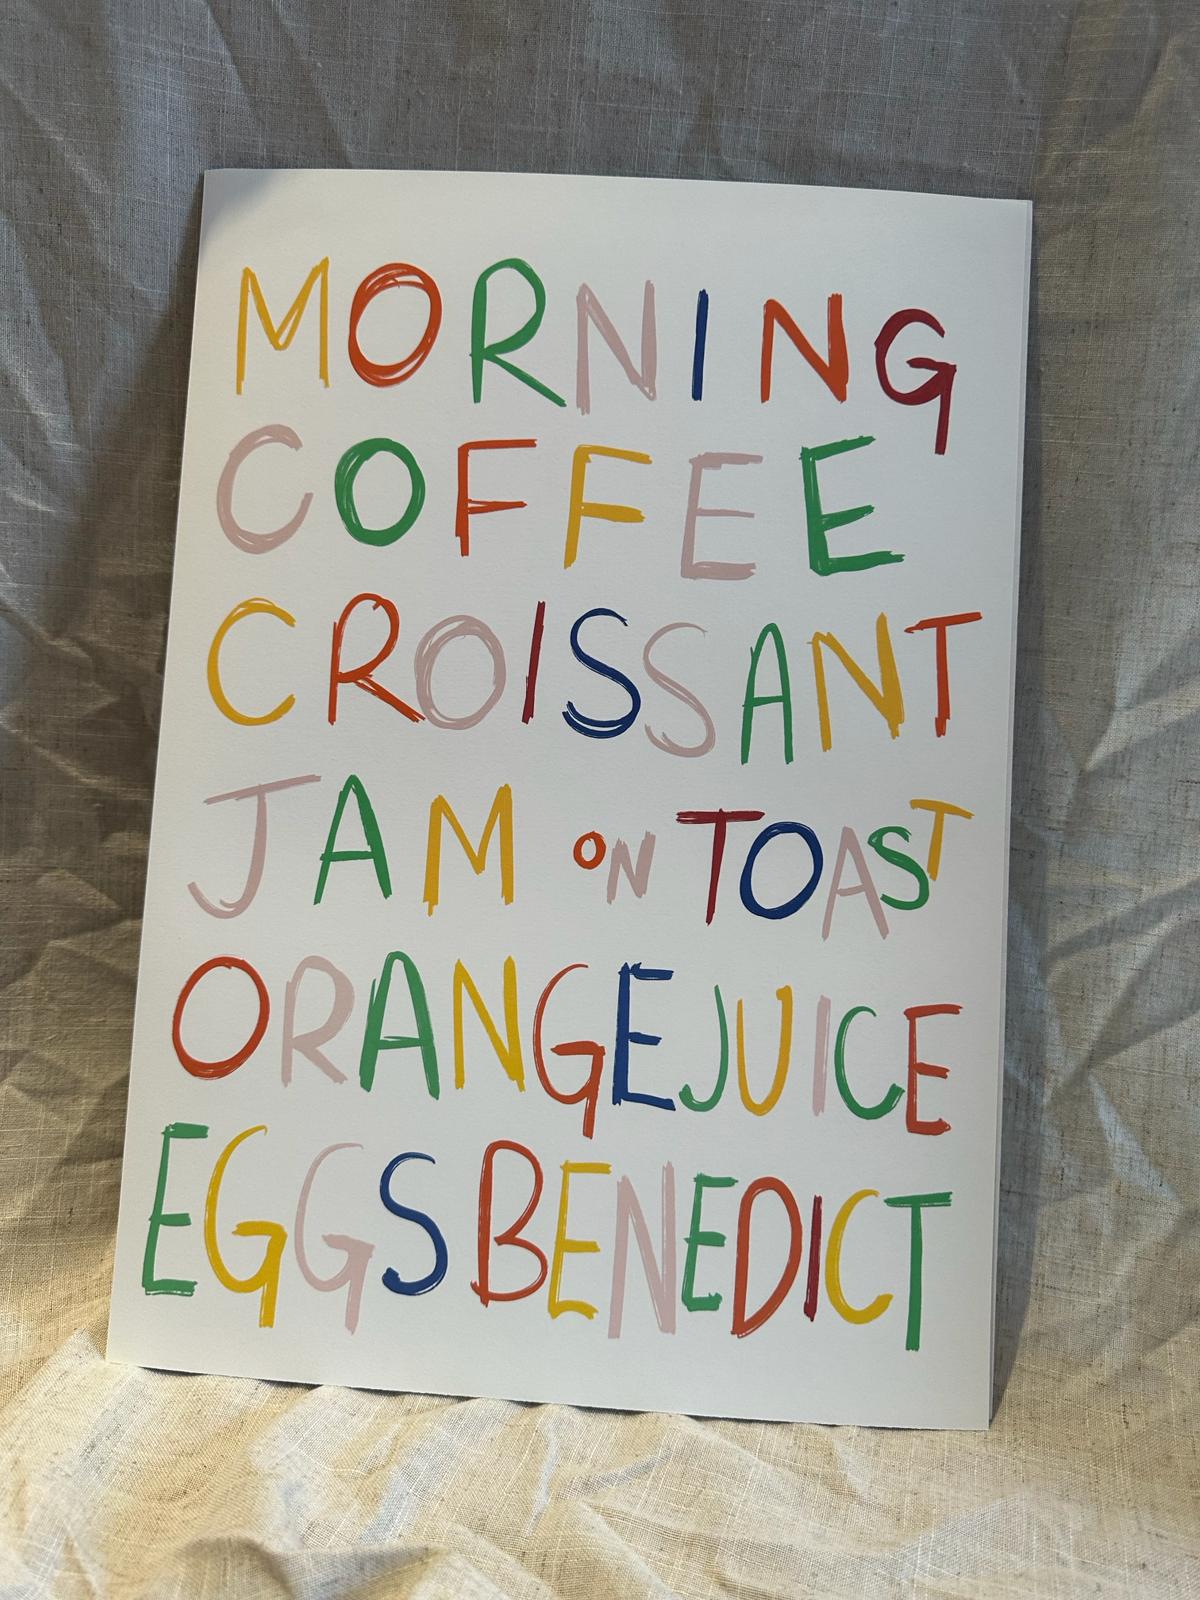 MORNING
COFFEE
CROISSANT
JAM ON TOAST
ORANGE JUICE
EGGS BENEDICT